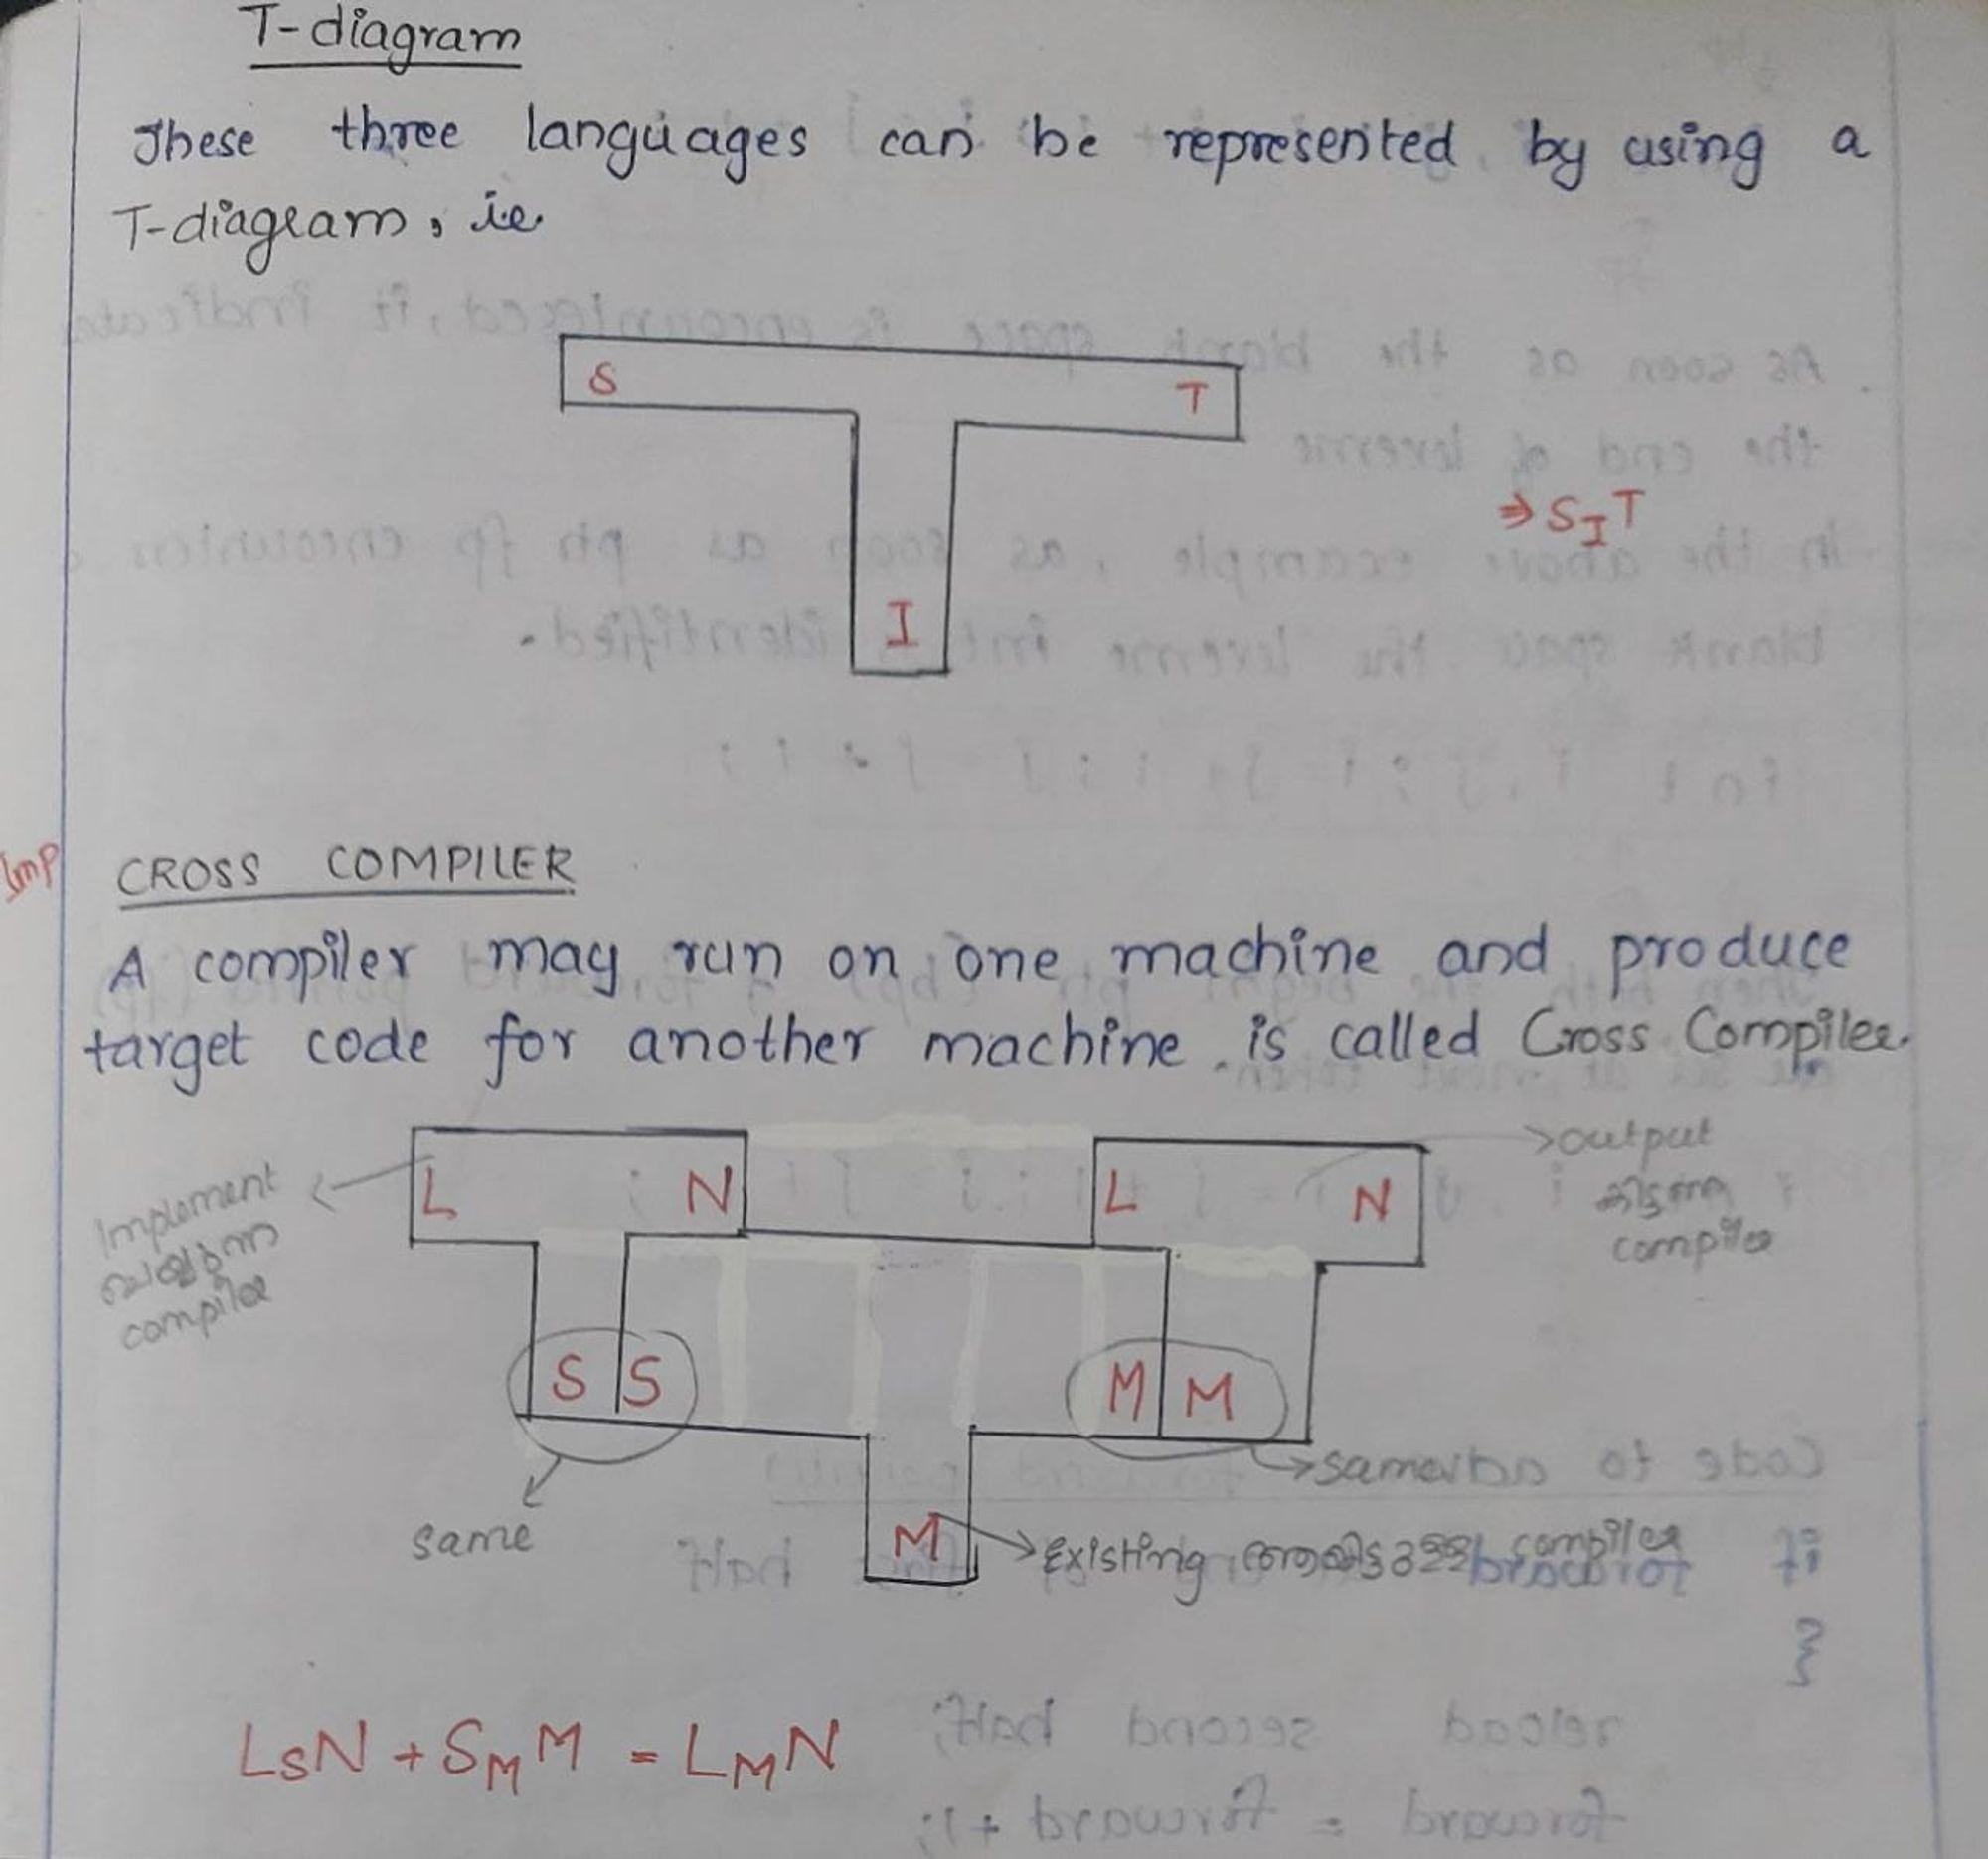 T-diagram
These three languages can be represented by using a
T-diagram, ie
S T
⇒ S_I T
I
Imp
CROSS COMPILER
A compiler may run on one machine and produce
target code for another machine is called Cross Compiler.
L N L N
Implement
compiler
output
കിട്ടുന്ന
compiler
S S M M
same
same
M
Existing compiler
L_S N + S_M M = L_M N